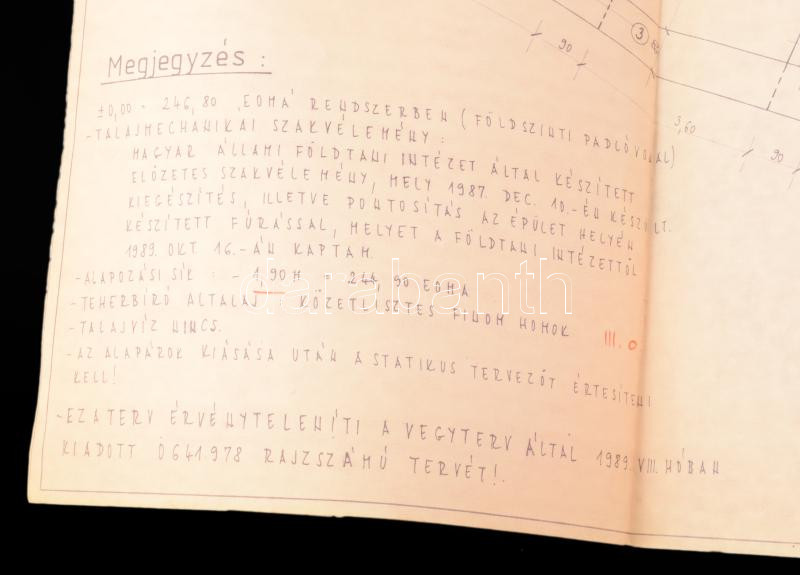 Megjegyzés :
±0,00 = 246,80 „EOMA" RENDSZERBEN (FÖLDSZINTI PADLÓVONAL)
-TALAJMECHANIKAI SZAKVÉLEMÉNY:
MAGYAR ÁLLAMI FÖLDTANI INTÉZET ÁLTAL KÉSZÍTETT
ELŐZETES SZAKVÉLEMÉNY, MELY 1987. DEC. 10.-ÉN KÉSZÜLT.
KIEGÉSZÍTÉS, ILLETVE PONTOSÍTÁS AZ ÉPÜLET HELYÉN
KÉSZÍTETT FÚRÁSSAL, MELYET A FÖLDTANI INTÉZETTŐL
1989. OKT. 16.-ÁN KAPTAM.
-ALAPOZÁSI SÍK : - 1,90 M = 244,90 EOMA
-TEHERBÍRÓ ALTALAJ : KŐZETLISZTES FINOM HOMOK III. O
-TALAJVÍZ NINCS.
-AZ ALAPÁROK KIÁSÁSA UTÁN A STATIKUS TERVEZŐT ÉRTESÍTENI
KELL!
-EZ A TERV ÉRVÉNYTELENÍTI A VEGYTERV ÁLTAL 1989. VIII. HÓBAN
KIADOTT Ö641.978 RAJZSZÁMÚ TERVÉT!
90
3
3,60
90
darabanth